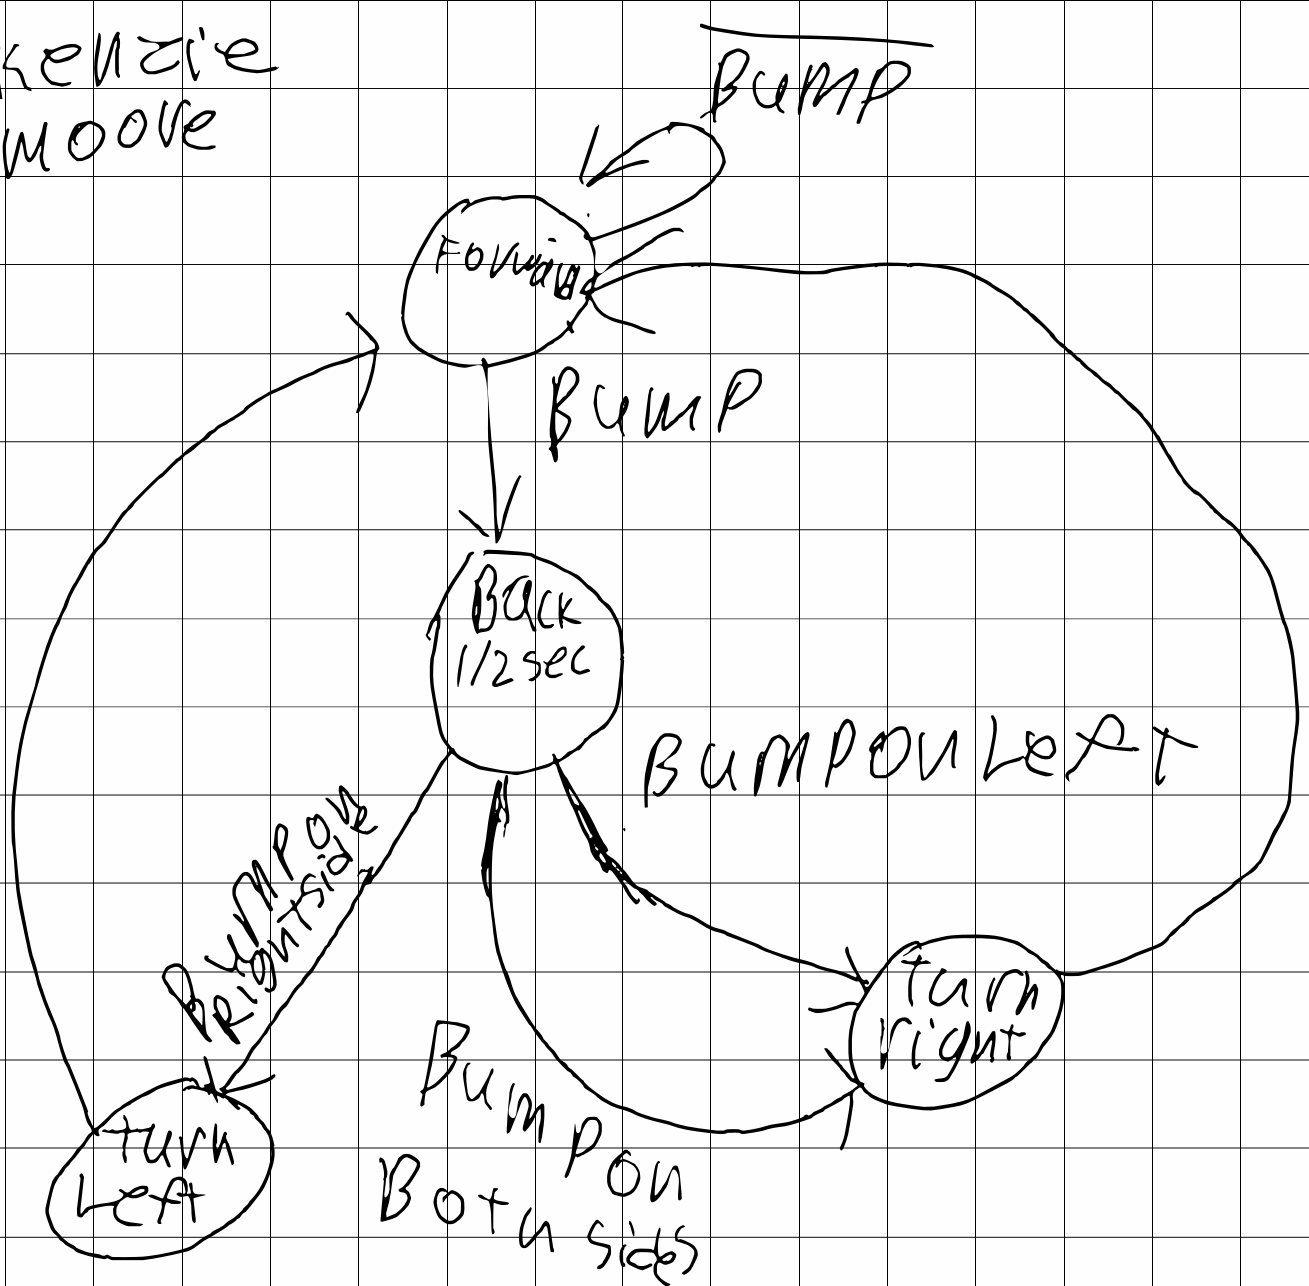 kenzie
moore
BUMP
Forward
BUMP
Back
1/2 sec
BUMP ON Left
BUMP ON
Right side
turn
right
turn
Left
BUMP ON
Both sides